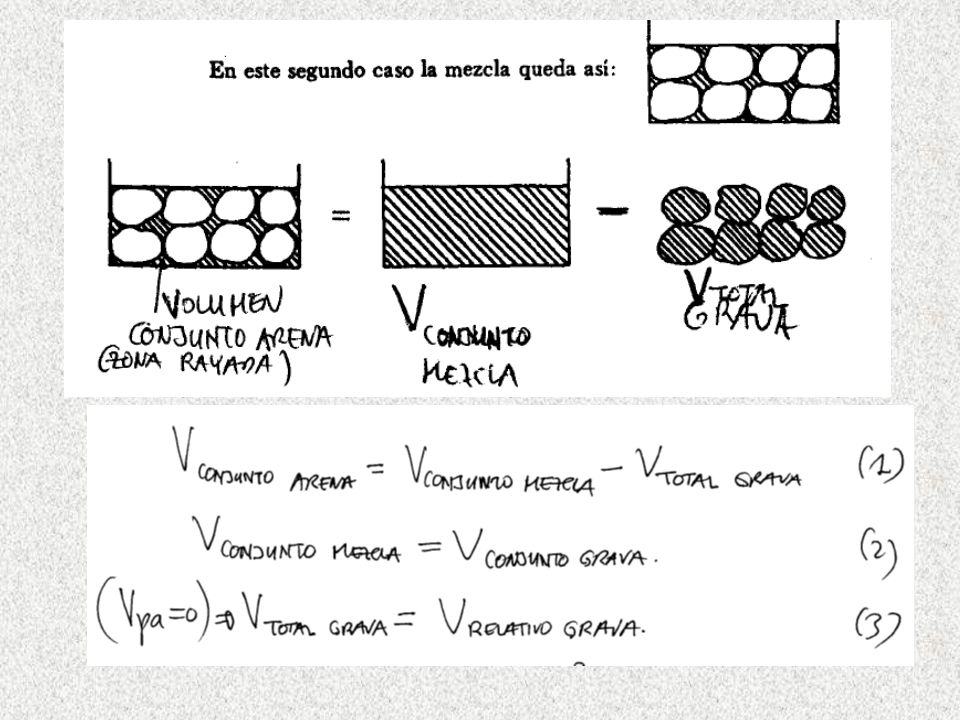 En este segundo caso la mezcla queda así:
= −
VOLUMEN
CONJUNTO ARENA
(ZONA RAYADA)
V
CONJUNTO
MEZCLA
V TOTAL
GRAVA
V CONJUNTO ARENA = V CONJUNTO MEZCLA − V TOTAL GRAVA (1)
V CONJUNTO MEZCLA = V CONJUNTO GRAVA. (2)
(Vpa=0) ⇒ V TOTAL GRAVA = V RELATIVO GRAVA. (3)